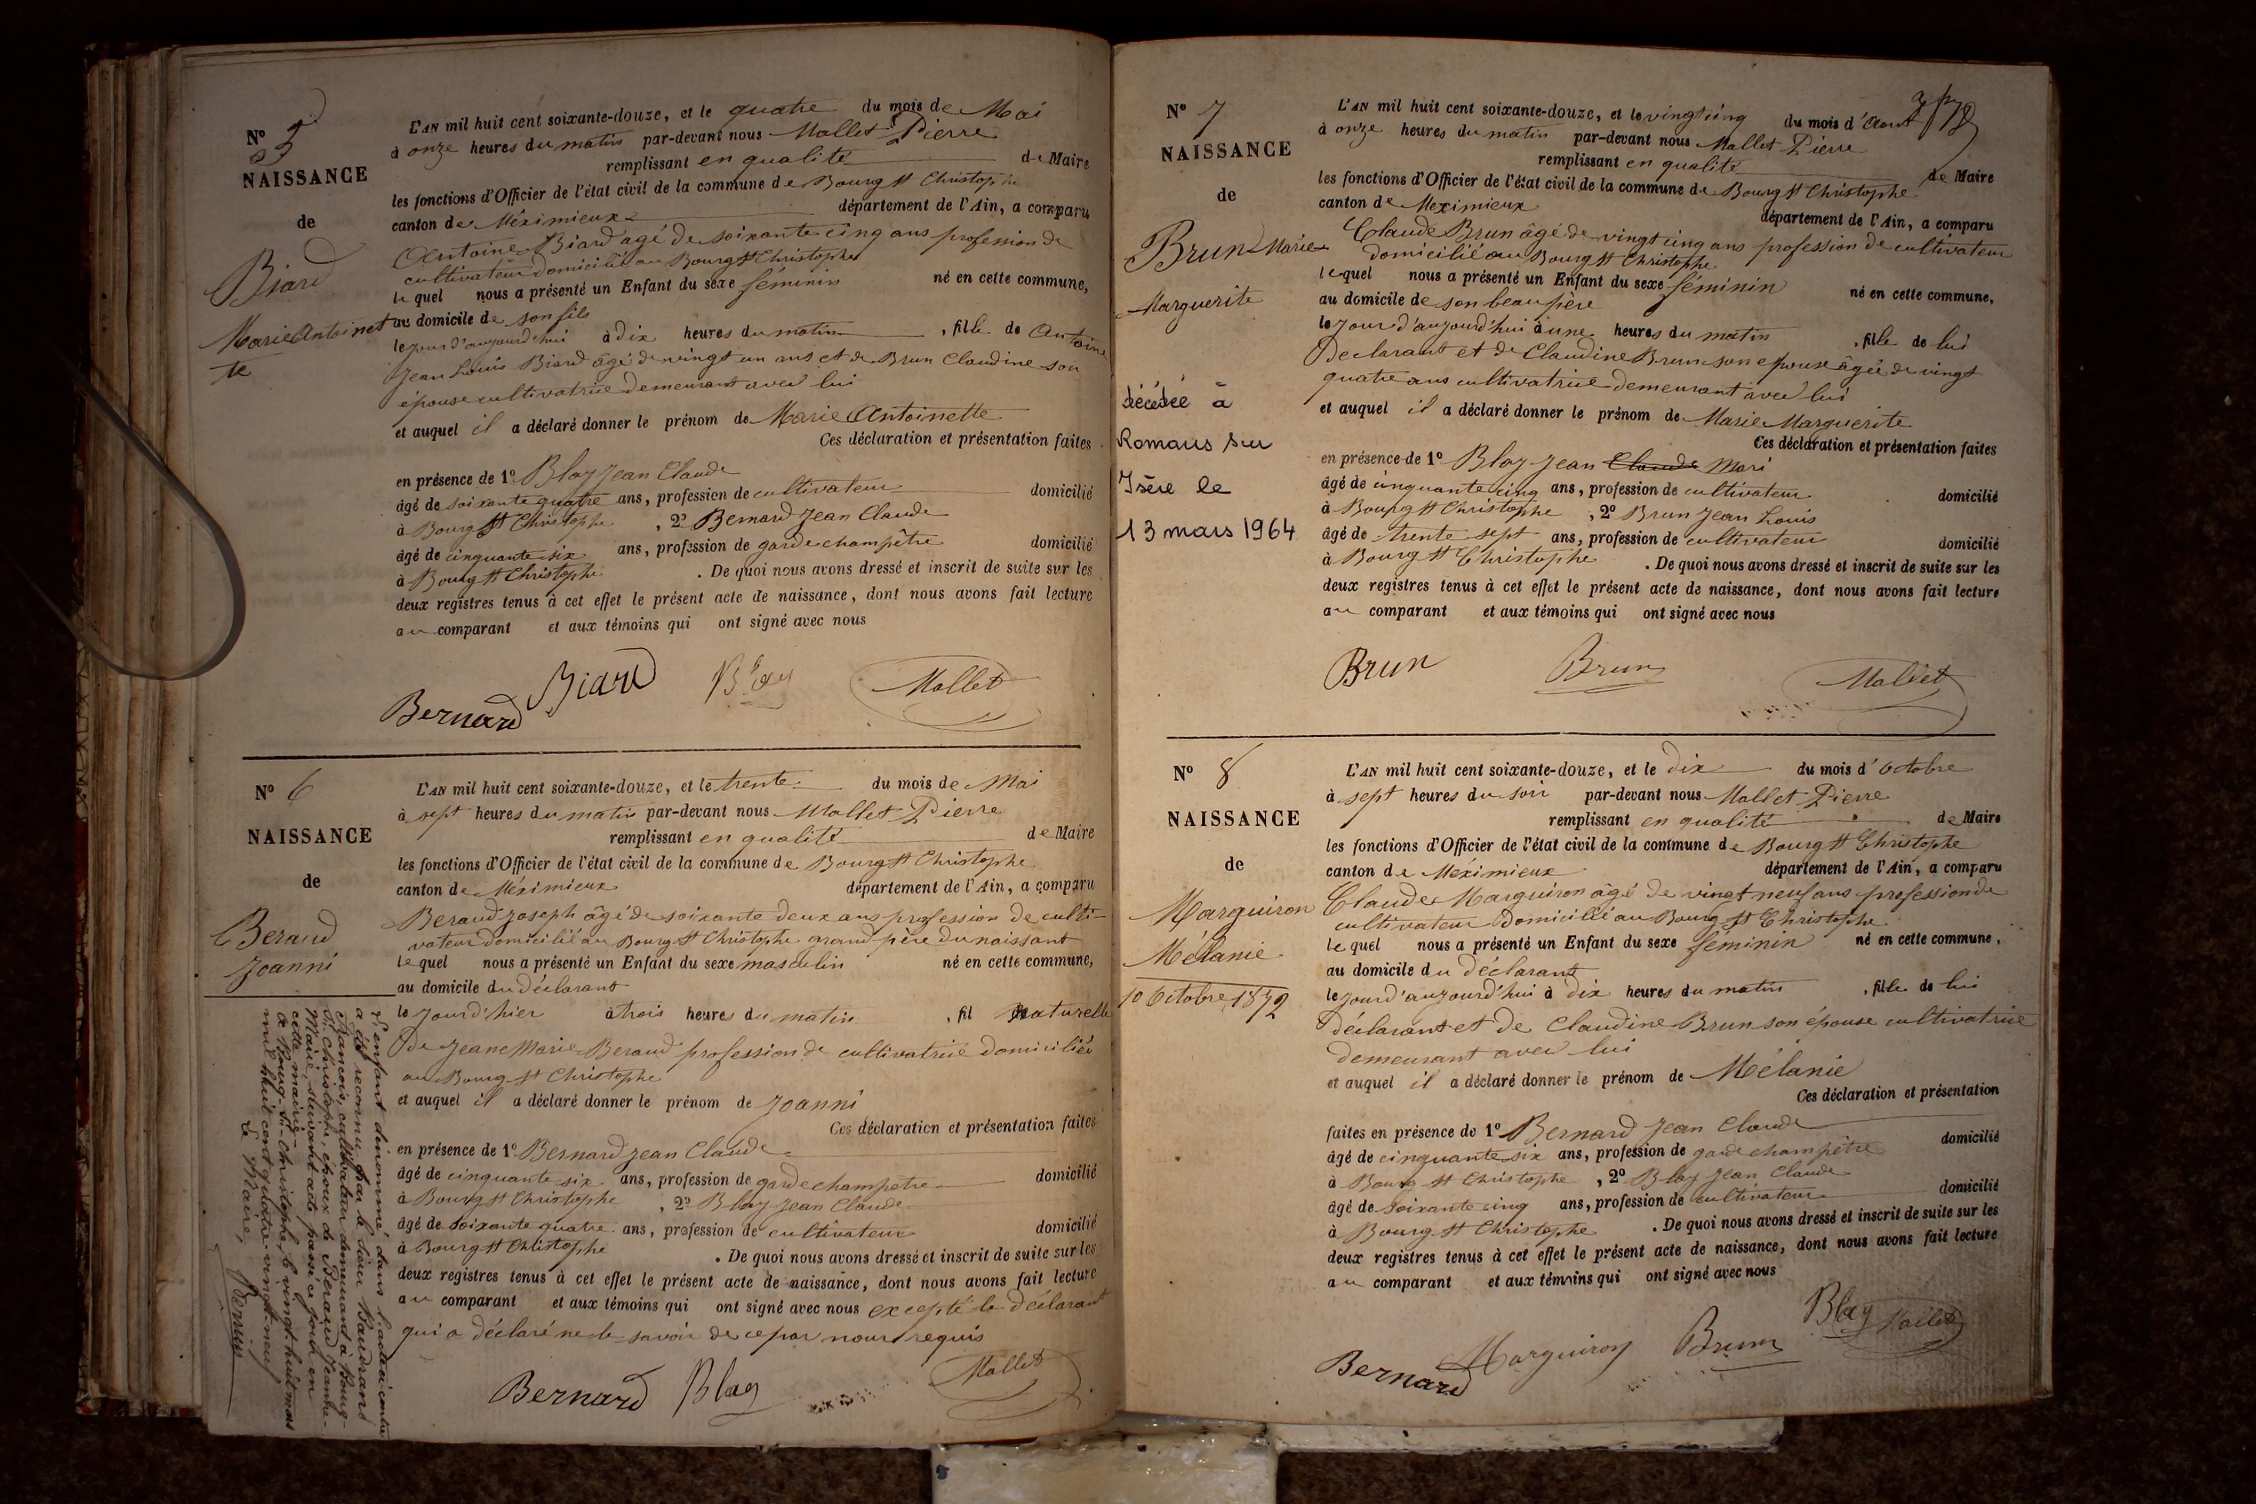 N° 5
NAISSANCE
de
Biard
Marie Antoinet
te
L'AN mil huit cent soixante-douze, et le quatre du mois de Mai
à onze heures du matin par-devant nous Mallet Pierre
remplissant en qualité de Maire
les fonctions d'Officier de l'état civil de la commune de Bourg St Christophe
canton de Méximieux département de l'Ain, a comparu
Antoine Biard agé de soixante cinq ans profession de
cultivateur domicilié au Bourg St Christophe
lequel nous a présenté un Enfant du sexe féminin né en cette commune,
au domicile de son fils
le jour d'aujourd'hui à dix heures du matin, fille de Antoine
Jean Louis Biard âgé de vingt un ans et de Brun Claudine son
épouse cultivatrice demeurant avec lui
et auquel il a déclaré donner le prénom de Marie Antoinette
Ces déclaration et présentation faites
en présence de 1° Blay Jean Claude
âgé de soixante quatre ans, profession de cultivateur domicilié
à Bourg St Christophe, 2° Bernard Jean Claude
âgé de cinquante six ans, profession de garde champêtre domicilié
à Bourg St Christophe. De quoi nous avons dressé et inscrit de suite sur les
deux registres tenus à cet effet le présent acte de naissance, dont nous avons fait lecture
au comparant et aux témoins qui ont signé avec nous
Bernard Biard Blay Mallet
N° 6
NAISSANCE
de
Beraud
Joanni
L'enfant dénommé dans l'acte ci-contre
a été reconnu par le sieur Baudrand
François, cultivateur demeurant à Bourg-
St-Christophe, époux de Béraud Jeanne-
Marie, suivant acte passé ce jour en
cette mairie.
A Bourg-St-Christophe, le vingt-huit mars
mil huit cent quatre-vingt-neuf
Le Maire,
L'AN mil huit cent soixante-douze, et le trente du mois de Mai
à sept heures du matin par-devant nous Mallet Pierre
remplissant en qualité de Maire
les fonctions d'Officier de l'état civil de la commune de Bourg St Christophe
canton de Méximieux département de l'Ain, a comparu
Beraud Joseph âgé de soixante deux ans profession de culti-
vateur domicilié au Bourg St Christophe grand père du naissant
lequel nous a présenté un Enfant du sexe masculin né en cette commune,
au domicile du déclarant
le jour d'hier à trois heures du matin, fil naturelle
de Jeane Marie Beraud profession de cultivatrice domiciliée
au Bourg St Christophe
et auquel il a déclaré donner le prénom de Joanni
Ces déclaration et présentation faites
en présence de 1° Bernard Jean Claude
âgé de cinquante six ans, profession de garde champetre domicilié
à Bourg St Christophe, 2° Blay Jean Claude
âgé de soixante quatre ans, profession de cultivateur domicilié
à Bourg St Christophe. De quoi nous avons dressé et inscrit de suite sur les
deux registres tenus à cet effet le présent acte de naissance, dont nous avons fait lecture
au comparant et aux témoins qui ont signé avec nous excepté le déclarant
qui a déclaré ne le savoir de ce par nous requis
Bernard Blay Mallet
N° 7
NAISSANCE
de
Brun Marie
Marguerite
décédée à
Romans sur
Isère le
13 mars 1964
L'AN mil huit cent soixante-douze, et le vingt cinq du mois d'Aout
à onze heures du matin par-devant nous Mallet Pierre
remplissant en qualité de Maire
les fonctions d'Officier de l'état civil de la commune de Bourg St Christophe
canton de Meximieux département de l'Ain, a comparu
Claude Brun âgé de vingt cinq ans profession de cultivateur
domicilié au Bourg St Christophe
lequel nous a présenté un Enfant du sexe féminin né en cette commune,
au domicile de son beau père
le jour d'aujourd'hui à une heures du matin, fille de lui
declarant et de Claudine Brun son epouse âgée de vingt
quatre ans cultivatrice demeurant avec lui
et auquel il a déclaré donner le prénom de Marie Marguerite
Ces déclaration et présentation faites
en présence de 1° Blay Jean Claude Mari
âgé de cinquante cinq ans, profession de cultivateur domicilié
à Bourg St Christophe, 2° Brun Jean Louis
âgé de trente sept ans, profession de cultivateur domicilié
à Bourg St Christophe. De quoi nous avons dressé et inscrit de suite sur les
deux registres tenus à cet effet le présent acte de naissance, dont nous avons fait lecture
au comparant et aux témoins qui ont signé avec nous
Brun Brun Mallet
N° 8
NAISSANCE
de
Marguiron
Mélanie
10 Octobre 1872
L'AN mil huit cent soixante-douze, et le dix du mois d'Octobre
à sept heures du soir par-devant nous Mallet Pierre
remplissant en qualité de Maire
les fonctions d'Officier de l'état civil de la commune de Bourg St Christophe
canton de Méximieux département de l'Ain, a comparu
Claude Marguiron âgé de vingt neuf ans profession de
cultivateur domicilié au Bourg St Christophe
lequel nous a présenté un Enfant du sexe féminin né en cette commune,
au domicile du déclarant
le jour d'aujourd'hui à dix heures du matin, fille de lui
déclarant et de Claudine Brun son épouse cultivatrice
demeurant avec lui
et auquel il a déclaré donner le prénom de Mélanie
Ces déclaration et présentation
faites en présence de 1° Bernard Jean Claude
âgé de cinquante six ans, profession de garde champêtre domicilié
à Bourg St Christophe, 2° Blay Jean Claude
âgé de soixante cinq ans, profession de cultivateur domicilié
à Bourg St Christophe. De quoi nous avons dressé et inscrit de suite sur les
deux registres tenus à cet effet le présent acte de naissance, dont nous avons fait lecture
au comparant et aux témoins qui ont signé avec nous
Bernard Marguiron Brun Blay Mallet